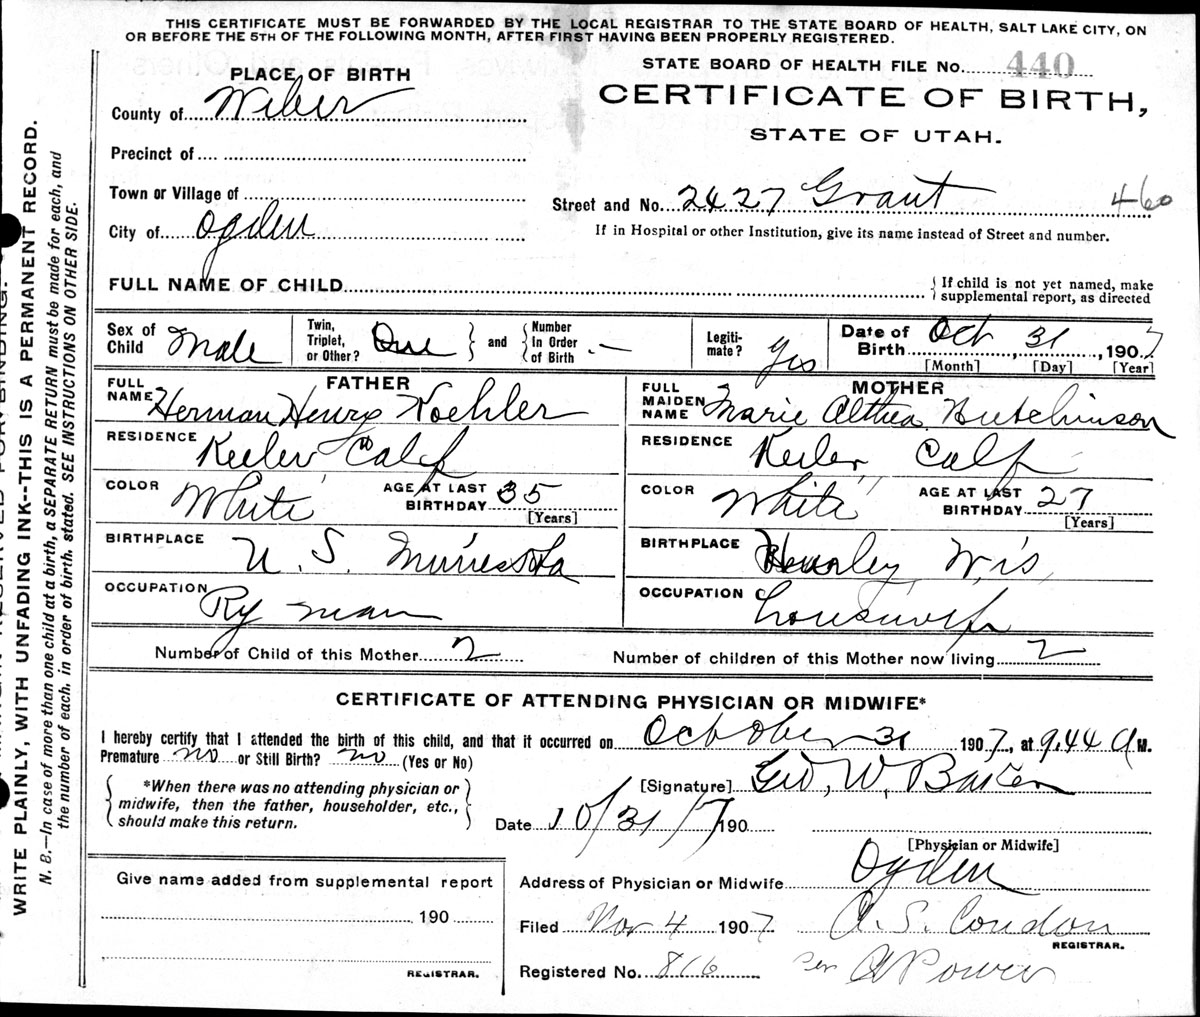 THIS CERTIFICATE MUST BE FORWARDED BY THE LOCAL REGISTRAR TO THE STATE BOARD OF HEALTH, SALT LAKE CITY, ON
OR BEFORE THE 5TH OF THE FOLLOWING MONTH, AFTER FIRST HAVING BEEN PROPERLY REGISTERED.
STATE BOARD OF HEALTH FILE No. 440
PLACE OF BIRTH
CERTIFICATE OF BIRTH,
STATE OF UTAH.
County of Weber
Precinct of
Town or Village of
Street and No. 2427 Grant 460
City of Ogden
If in Hospital or other Institution, give its name instead of Street and number.
FULL NAME OF CHILD
{If child is not yet named, make
supplemental report, as directed
Sex of Child Male
Twin, Triplet, or Other? One } and { Number In Order of Birth —
Legiti-mate? Yes
Date of Birth Oct 31, 1907
[Month] [Day] [Year]
FATHER
FULL NAME Herman Henry Koehler
RESIDENCE Keeler Calif
COLOR White AGE AT LAST BIRTHDAY 35 [Years]
BIRTHPLACE U. S. Minnesota
OCCUPATION Ry man
MOTHER
FULL MAIDEN NAME Marie Althea Hutchinson
RESIDENCE Keeler, Calf
COLOR White AGE AT LAST BIRTHDAY 27 [Years]
BIRTHPLACE Hurley, Wis,
OCCUPATION housewife
Number of Child of this Mother 2 Number of children of this Mother now living 2
CERTIFICATE OF ATTENDING PHYSICIAN OR MIDWIFE*
I hereby certify that I attended the birth of this child, and that it occurred on October 31 1907, at 9.44 A M.
Premature no or Still Birth? no (Yes or No)
*When there was no attending physician or
midwife, then the father, householder, etc.,
should make this return.
[Signature] Geo, W, Baker
Date 10/31/7 190
[Physician or Midwife]
Give name added from supplemental report
190
REGISTRAR.
Address of Physician or Midwife Ogden
Filed Nov 4 1907 A. S. Condon
REGISTRAR.
Registered No. 816 Per A Power
WRITE PLAINLY, WITH UNFADING INK--THIS IS A PERMANENT RECORD.
N. B.—In case of more than one child at a birth, a SEPARATE RETURN must be made for each, and
the number of each, in order of birth, stated. SEE INSTRUCTIONS ON OTHER SIDE.